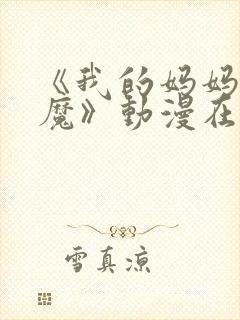 《我的妈妈
魔》動漫在
雪真凉